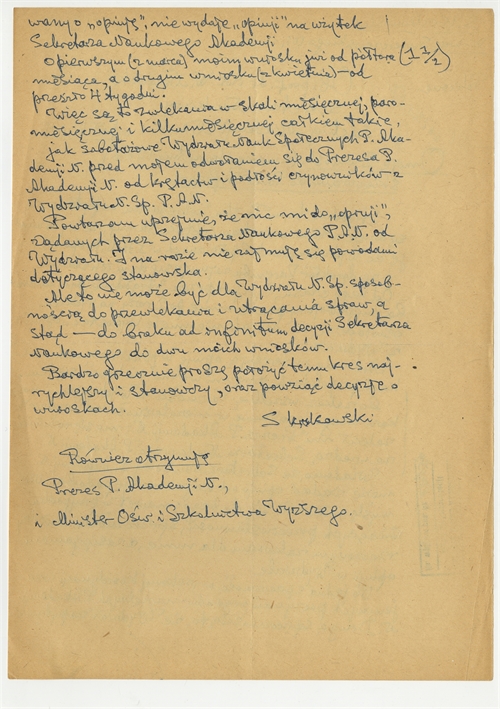 wany o „opinję”, nie wydaje „opinji” na użytek
Sekretarza Naukowego Akademji
O pierwszym (z marca) moim wniosku już od półtora (1 1/2)
miesiąca, a o drugim wniosku (z kwietnia) – od
przeszło 4 tygodni.
Więc są to zwlekania w skali miesięcznej, paro-
miesięcznej i kilkumiesięcznej całkiem takie,
jak sabotażowe Wydziału Nauk Społecznych P. Aka-
demji N. przed mojem odwołaniem się do Prezesa P.
Akademji N. od krętactw i podłości czynowników z
Wydziału N. Sp. P.A.N.
Powtarzam uprzejmie, że nic mi do „opinji”,
żądanych przez Sekretarza Naukowego P.A.N. od
Wydziału. I na razie nie zajmuję się powodami
dotyczącego stanowiska.
Ale to nie może być dla Wydziału N. Sp. sposob-
nością do przewlekania i utrącania spraw, a
stąd — do braku ad infinitum decyzji Sekretarza
Naukowego do dwu moich wniosków.
Bardzo grzecznie proszę położyć temu kres naj-
rychlejszy i stanowczy, oraz powziąć decyzje o
wnioskach.
Również otrzymują
Prezes P. Akademji N.,
i Minister Ośw. i Szkolnictwa Wyższego.